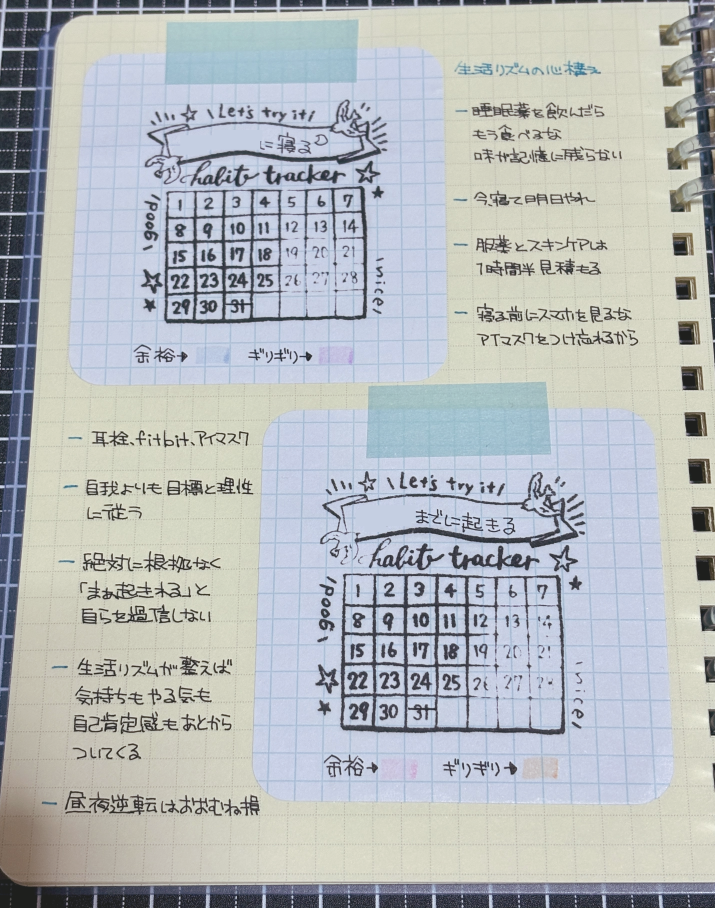 Let's try it!
に寝る
habit tracker
good
nice
1 2 3 4 5 6 7
8 9 10 11 12 13 14
15 16 17 18 19 20 21
22 23 24 25 26 27 28
29 30 31
余裕→ ギリギリ→
生活リズムの心構え
ー 睡眠薬を飲んだら
もう食べるな
味が記憶に残らない
ー 今寝て明日やれ
ー 服薬とスキンケアは
1時間半見積もる
ー 寝る前にスマホを見るな
アイマスクをつけ忘れるから
ー 耳栓、fitbit、アイマスク
ー 自我よりも目標と理性
に従う
ー 絶対に根拠なく
「まぁ起きれる」と
自らを過信しない
ー 生活リズムが整えば
気持ちもやる気も
自己肯定感もあとから
ついてくる
ー 昼夜逆転はおおむね損
Let's try it!
までに起きる
habit tracker
good
nice
1 2 3 4 5 6 7
8 9 10 11 12 13 14
15 16 17 18 19 20 21
22 23 24 25 26 27 28
29 30 31
余裕→ ギリギリ→